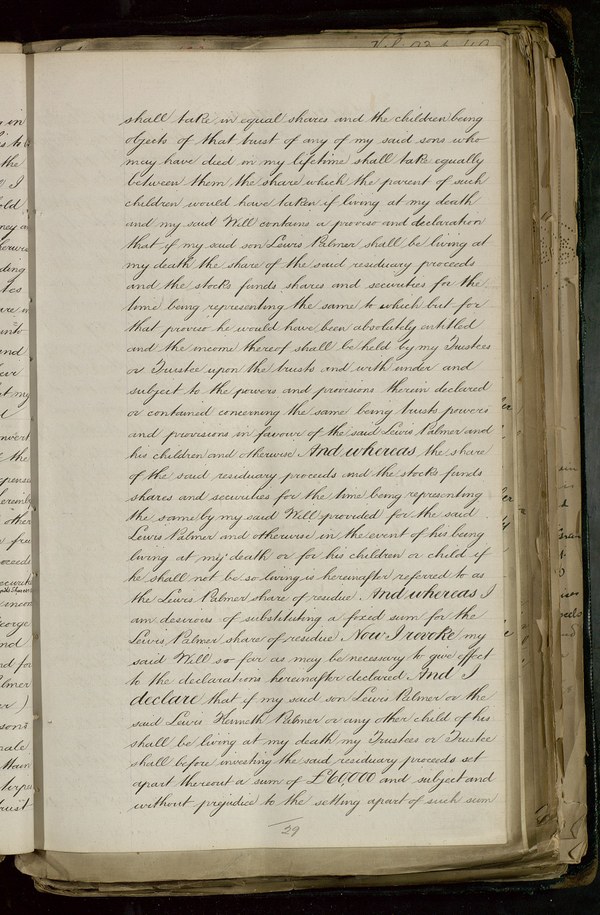 shall take in equal shares and the children being
objects of that trust of any of my said sons who
may have died in my lifetime shall take equally
between them the share which the parent of such
children would have taken if living at my death
and my said Will contains a proviso and declaration
that if my said son Lewis Palmer shall be living at
my death the share of the said residuary proceeds
and the stocks funds shares and securities for the
time being representing the same to which but for
that proviso he would have been absolutely entitled
and the income thereof shall be held by my Trustees
or Trustee upon the trusts and with under and
subject to the powers and provisions therein declared
or contained concerning the same being trusts powers
and provisions in favour of the said Lewis Palmer and
his children and otherwise And whereas the share
of the said residuary proceeds and the stocks funds
shares and securities for the time being representing
the same by my said Will provided for the said
Lewis Palmer and otherwise in the event of his being
living at my death or for his children or child if
he shall not be so living is hereinafter referred to as
the Lewis Palmer share of residue And whereas I
am desirous of substituting a fixed sum for the
Lewis Palmer share of residue Now I revoke my
said Will so far as may be necessary to give effect
to the declarations hereinafter declared And I
declare that if my said son Lewis Palmer or the
said Lewis Kenneth Palmer or any other child of his
shall be living at my death my Trustees or Trustee
shall before investing the said residuary proceeds set
apart thereout a sum of £60,000 and subject and
without prejudice to the setting apart of such sum
29